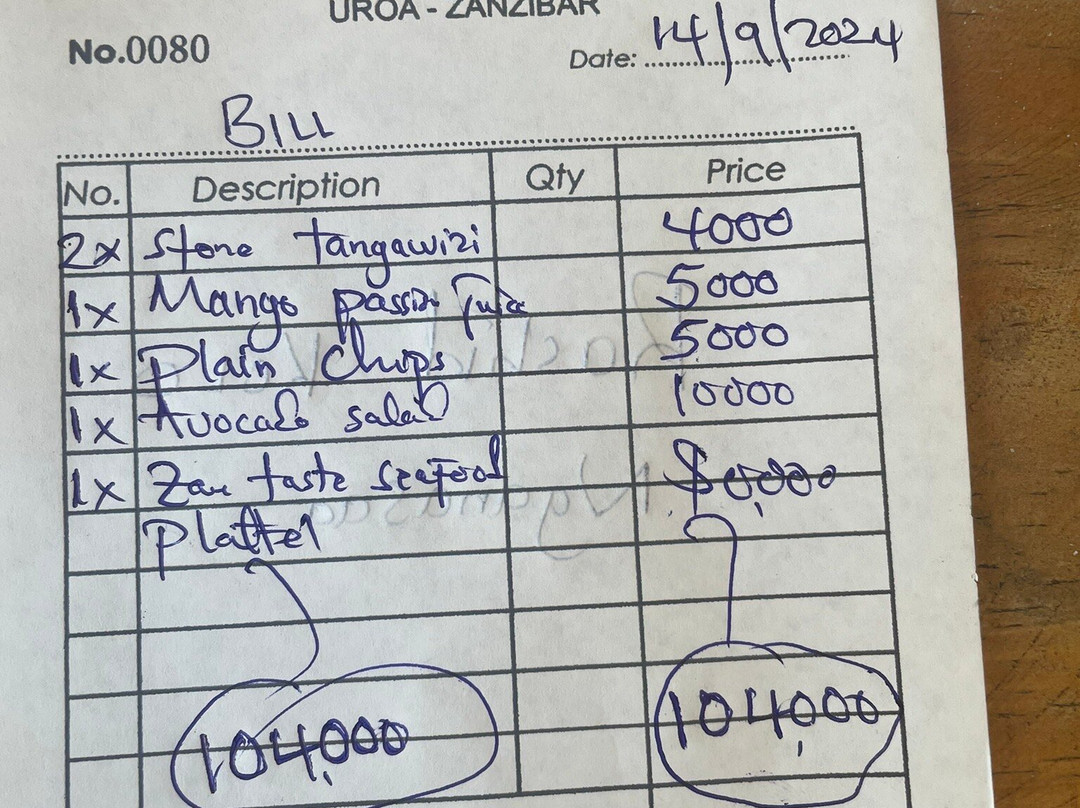 UROA - ZANZIBAR
No.0080
Date: 14/9/2024
BILL
No. Description Qty Price
2x Stone tangawizi 4000
1x Mango passion Juice 5000
1x Plain chips 5000
1x Avocado salad 10000
1x Zan taste seafood
Platter
104,000 104,000